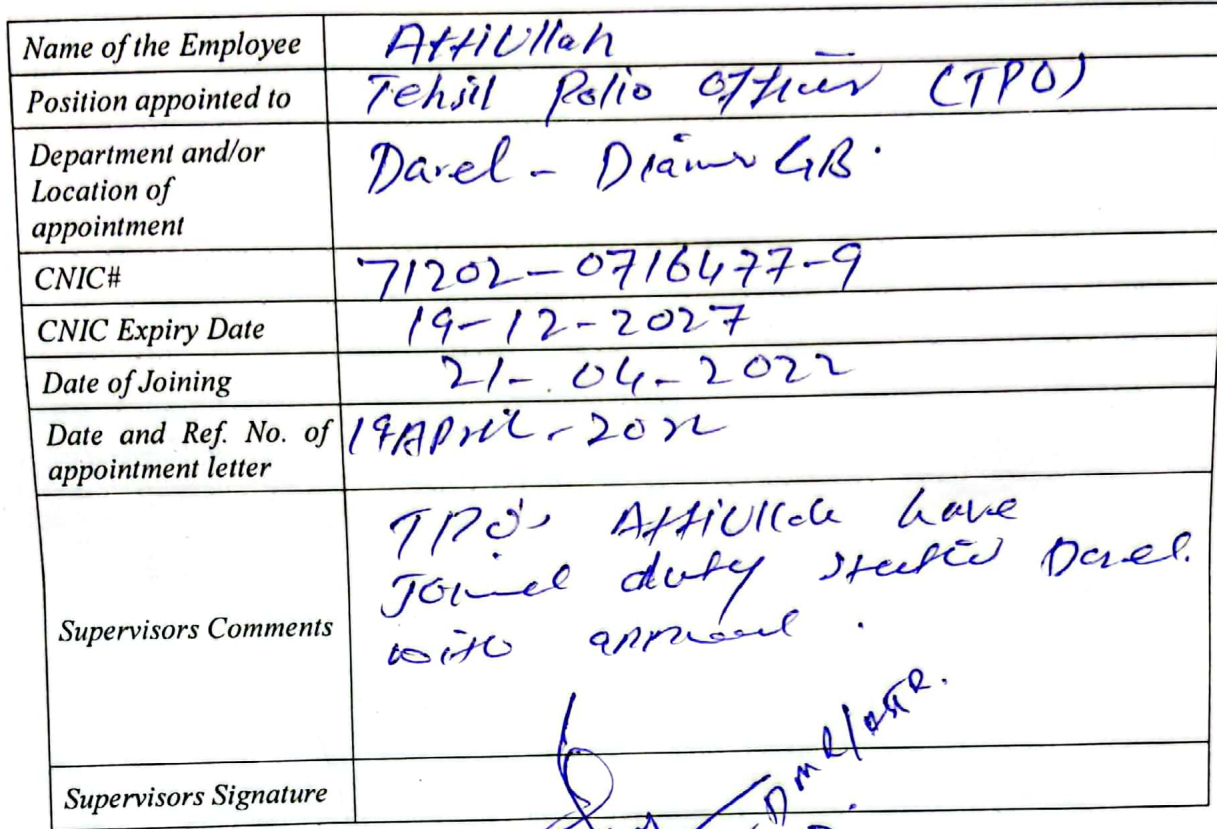 Name of the Employee AttiUllah
Position appointed to Tehsil Polio Officer (TPO)
Department and/or
Location of
appointment
Darel - Diamer GB.
CNIC# 71202-0716477-9
CNIC Expiry Date 19-12-2027
Date of Joining 21-04-2022
Date and Ref. No. of
appointment letter
19 April - 2022
Supervisors Comments
TPO, AttiUllah have
Joined duty station Darel.
with approval.
Supervisors Signature